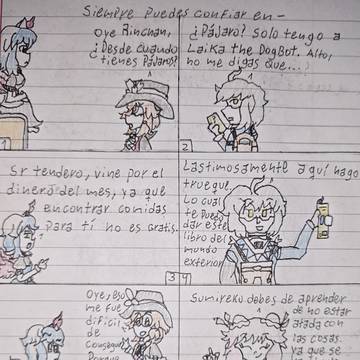 Siempre Puedes confiar en-
Oye Rinchan,
¿Desde cuando
tienes Pájaros?
¿Pájaro? Solo tengo a
Laika the DogBot. Alto,
no me digas que...
2
Sr tendero, vine por el
dinero del mes, ya que
encontrar comidas
Para tí no es gratis.
3
Lastimosamente aquí hago
trueque.
Lo cual
te puedo
dar este
libro del
mundo
exterior
4
Oye, eso
me fue
dificil
de
conseguir
Porque
Sumireko debes de aprender
de no estar
atada con
las cosas.
Ya que se